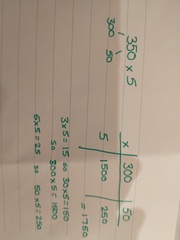 350 x 5
300 50
x 300 50
5 1500 250
= 1750
3 x 5 = 15 so 30 x 5 = 150
so 300 x 5 = 1500
5 x 5 = 25 so 50 x 5 = 250